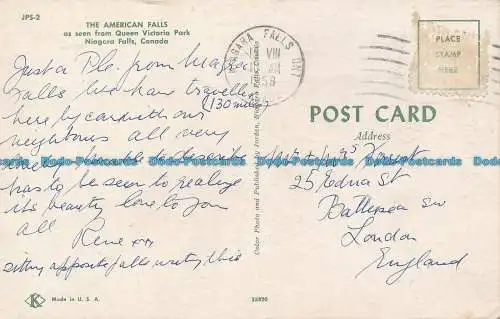 JPS-2
THE AMERICAN FALLS
as seen from Queen Victoria Park
Niagara Falls, Canada
Just a P.C. from Niagra
Falls. We have travelled
(130 miles)
here by car with our
neighbours all very
has to be seen to realize
its beauty love to you
all
Rene xx
sitting opposite falls writing this
Made in U. S. A.
Color Photo and Published by Jordan, Niagara Falls, Ontario
NIAGARA FALLS ONT
VIII
PLACE
STAMP
HERE
POST CARD
Address
Mr & Mrs Hurst
25 Edna St
Battersea SW
London
England
Bodo-Postcards Bodo-Postcards Bodo-Postcards
K